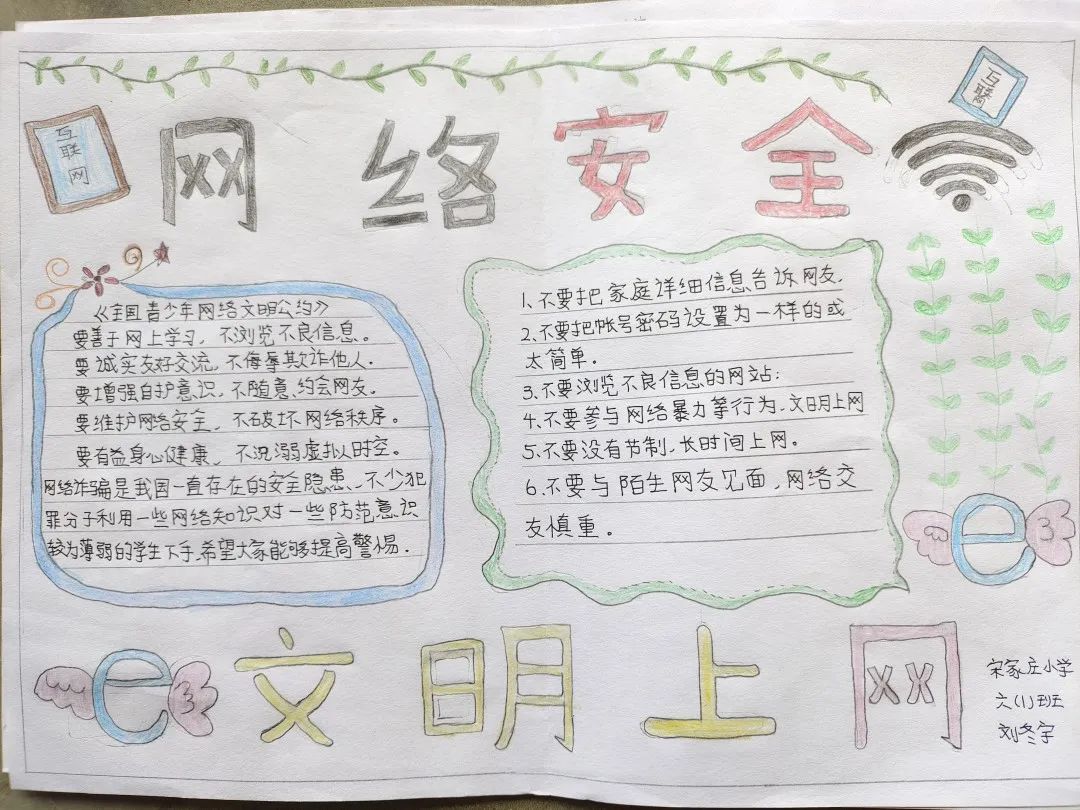 互联网
网络安全
互联网
《全国青少年网络文明公约》
要善于网上学习，不浏览不良信息。
要诚实友好交流，不侮辱欺诈他人。
要增强自护意识，不随意约会网友。
要维护网络安全，不破坏网络秩序。
要有益身心健康，不沉溺虚拟时空。
网络诈骗是我国一直存在的安全隐患，不少犯
罪分子利用一些网络知识对一些防范意识
较为薄弱的学生下手，希望大家能够提高警惕.
1、不要把家庭详细信息告诉网友.
2、不要把帐号密码设置为一样的或
太简单.
3、不要浏览不良信息的网站;
4、不要参与网络暴力等行为，文明上网
5、不要没有节制，长时间上网。
6、不要与陌生网友见面，网络交
友慎重。
e
e
文明上网
宋家庄小学
六(1)班
刘冬宇